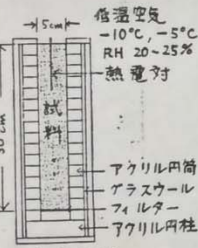 5cm
低温空気
-10°C, -5°C
RH 20~25%
熱電対
試料
30cm
アクリル円筒
グラスウール
フィルター
アクリル円柱